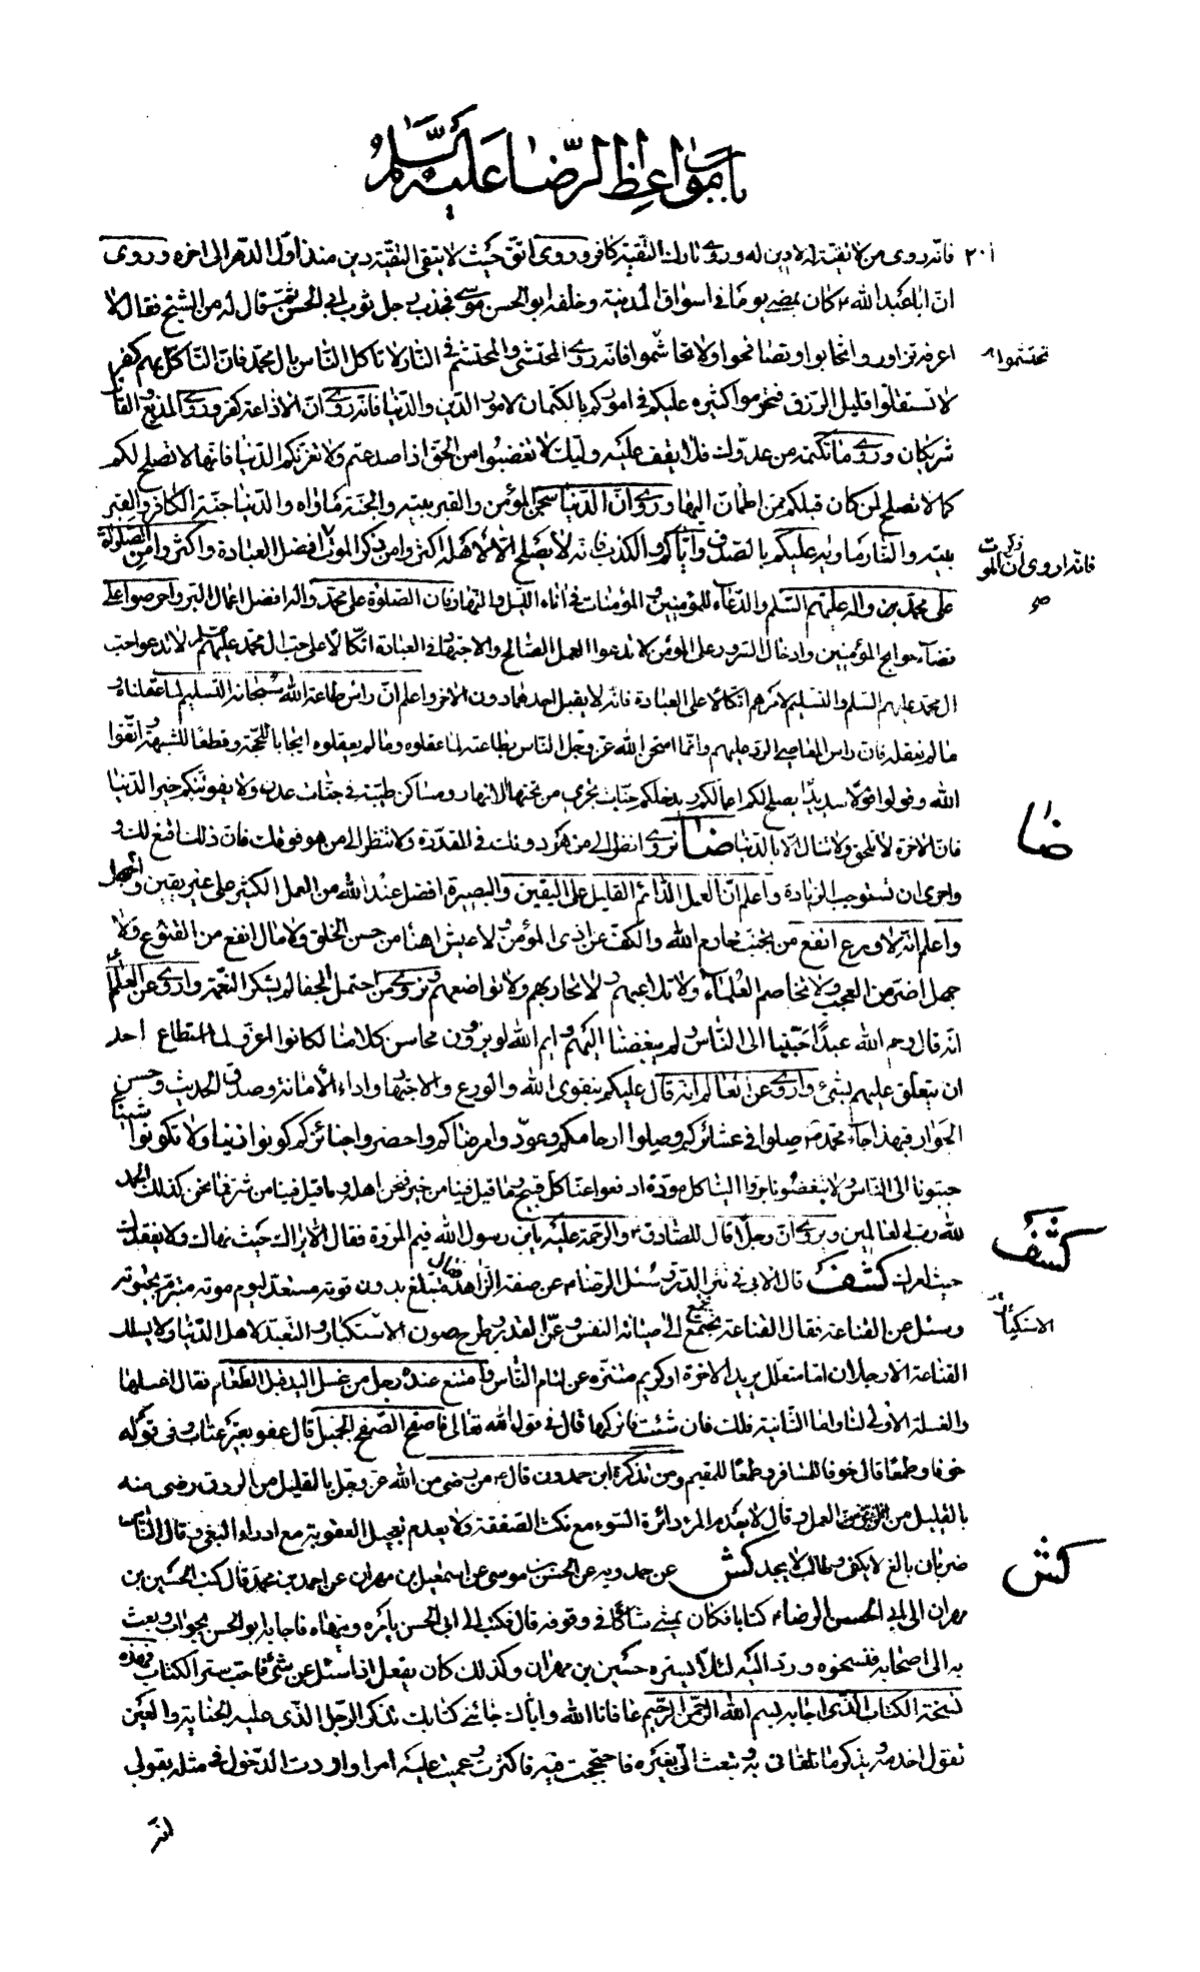 باب مواعظ الرضا عليه السلم
٢٠١ فانه روى من لا تقية له لا دين له وروى تارك التقية كافر وروى اتق حيث لا يتقى التقية دين منذ اول الدهر الى اخره وروى
ان ابا عبد الله ٤ كان يمضى يوما فى اسواق المدينة وخلفه ابو الحسن موسى فجذب رجل ثوب ابى الحسن ثم قال له من الشيخ فقال لا
اعرف تزاوروا تحابوا وتصافحوا ولا تحاشموا فانه روى المحتشم والمحتشم فى النار لا تاكل الناس بال محمد فان التاكل بهم كفر
تحتشموا
لا تستقلوا قليل الرزق فتحرموا كثيره عليكم فى اموركم بالكتمان لامور الدين والدنيا فانه روى ان الاذاعة كفر وروى المذيع والقاتل
شريكان وروى ما تكتمه من عدوك فلا يقف عليه وليك لا تغضبوا من الحق اذا صدعتم ولا تغرنكم الدنيا فانها لا تصلح لكم
كما لا تصلح لمن كان قبلكم ممن اطمان اليها وروى ان الدنيا سجن المؤمن والقبر بيته والجنة ماواه والدنيا جنة الكافر والقبر
بيته والنار ماويه عليكم بالصدق واياكم والكذب فانه لا يصلح الا لاهله اكثروا من ذكر الموت افضل العبادة واكثروا من الصلوة
ذكر الموت
فانه اروى ان
على محمد واله عليهم السلم والدعاء للمؤمنين والمؤمنات فى اناء الليل والنهار فان الصلوة على محمد واله افضل اعمال البر واحرصوا على
قضاء حوايج المؤمنين وادخال السرور على المؤمن لا تدعوا العمل الصالح والاجتهاد فى العبادة اتكالا على حب ال محمد عليهم السلم لا تدعوا حب
ال محمد عليهم السلم والتسليم لامرهم اتكالا على العبادة فانه لا يقبل احدهما دون الاخر واعلم ان راس طاعة الله سبحانه التسليم لما عقلناه و
ما لم نعقله فان راس المعاصى الرد عليهم وانما امتحن الله عز وجل الناس بطاعته لما عقلوه وما لم يعقلوه ايجابا للحجة وقطعا للشبهة واتقوا
الله وقولوا قولا سديدا يصلح لكم اعمالكم ويدخلكم جنات تجرى من تحتها الانهار ومساكن طيبة فى جنات عدن ولا يفوتنكم خير الدنيا
فان الاخرة لا تلحق ولا تنال الا بالدنيا ضا نروى انظر الى من هو دونك فى المقدرة ولا تنظر الى من هو فوقك فان ذلك اقنع لك و
ضا
واحرى ان تستوجب الزيادة واعلم ان العمل الدائم القليل على اليقين والبصيرة افضل عند الله من العمل الكثير على غير يقين واجهل
واعلم انه لا ورع انفع من تجنب محارم الله والكف عن اذى المؤمن ولا عيش اهنا من حسن الخلق ولا مال انفع من القنوع ولا
جهل اضر من العجب ولا تخاصم العلماء ولا تلاعبهم ولا تحاربهم ولا تواضعهم ونروى من احتمل الجفا لم يشكر النعمة واروى عن العالم
انه قال رحم الله عبدا حببنا الى الناس ولم يبغضنا اليهم وايم الله لو يروون محاسن كلامنا لكانوا اعز ولما استطاع احد
ان يتعلق عليهم بشئ واروى عن العالم انه قال عليكم بتقوى الله والورع والاجتهاد واداء الامانة وصدق الحديث وحسن
الجوار فبهذا جاء محمد صلوا فى عشائركم وصلوا ارحامكم وعودوا مرضاكم واحضروا جنائزكم كونوا زينا ولا تكونوا شينا
حببونا الى الناس ولا تبغضونا جروا الينا كل مودة ادفعوا عنا كل قبيح وما قيل فينا من خير فنحن اهله وما قيل فينا من شر فما نحن كذلك الحمد
لله رب العالمين ويروى ان رجلا قال للصادق ٤ والرحمة عليه يا بن رسول الله فيم المروة فقال الا يراك حيث نهاك ولا يفقدك
حيث امرك كشف قال الابى فى نثر الدرر وسئل الرضا ٤ عن صفة الزاهد فقال متبلغ بدون قوته مستعد ليوم موته متبرم بحيوته
كشف
وسئل عن القناعة فقال القناعة تجتمع الى صيانة النفس وعز القدر وطرح مون الاستكبار والتعبد لاهل الدنيا ولا يسلك
تجمع
القناعة الا رجلان اما متعلل يريد الاخرة او كريم متنزه عن لئام الناس وامتنع عنده رجل من غسل اليد قبل الطعام فقال اغسلها
والغسلة الاولى لنا واما الثانية فلك فان شئت فاتركها قال فى قول الله تعالى فاصفح الصفح الجميل قال عفو بغير عتاب وفى قوله
خوفا وطمعا قال خوفا للمسافر وطمعا للمقيم ومن تذكرة ابن حمدون قال ٤ من رضى من الله عز وجل بالقليل من الرزق رضى منه
بالقليل من العمل وقال لا يعدم المرء دائرة السوء مع نكث الصفقة ولا يعدم تعجيل العقوبة مع ادراء البغى وقال الناس
ضربان بالغ لا يكتفى وطالب لا يجد كش عن حمدويه عن الحسن بن موسى عن اسمعيل بن مهران عن احمد بن محمد قال كتب الحسين بن
كش
مهران الى ابى الحسن الرضا ٤ كتابا فكان يمشى شاكا فى وقوفه قال فكتب الى ابى الحسن يامره وينهاه فاجابه ابو الحسن بجواب وبعث
به الى اصحابه فنسخوه ورد اليه لئلا يستره حسين بن مهران وكذلك كان يفعل اذا سئل عن شئ فاحب ستر الكتاب فهذه
نسخة الكتاب الذى اجابه بسم الله الرحمن الرحيم عافانا الله واياك جائنى كتابك تذكر الرجل الذى عليه الخيانة والعين
تقول اخذته وتذكر ما تلقانى به وتبعث الى بغيره فاحتججت فيه فاكثرت وعميت عليه امرا واردت الدخول فى مثله بقولى